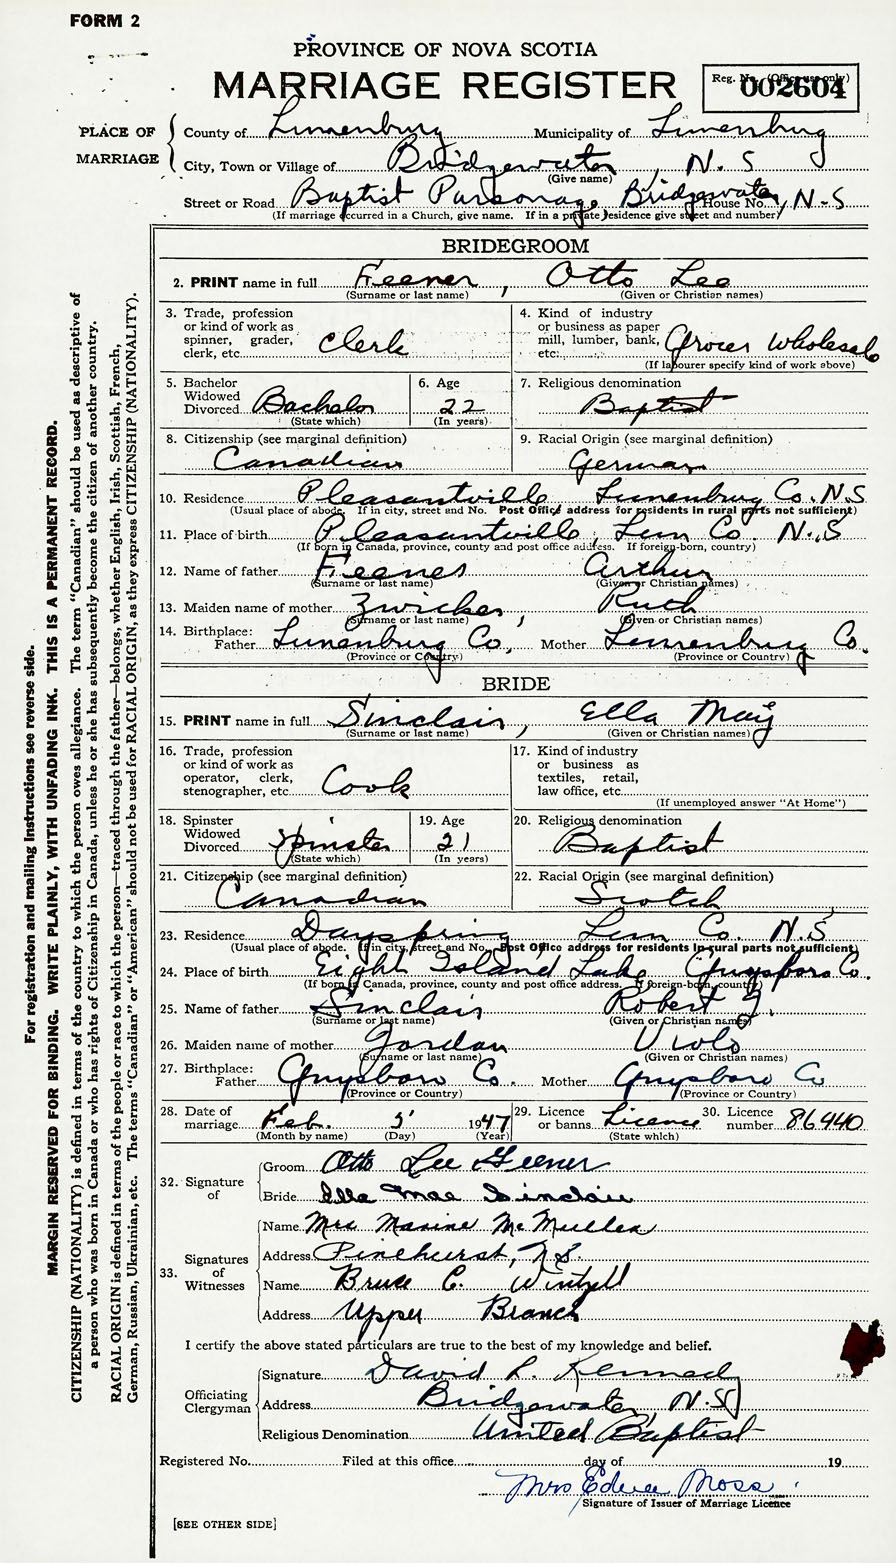 FORM 2
PROVINCE OF NOVA SCOTIA
MARRIAGE REGISTER
Reg. No. (Office use only)
002604
PLACE OF MARRIAGE
County of Lunenburg Municipality of Lunenburg
City, Town or Village of Bridgewater, N.S
(Give name)
Street or Road Baptist Parsonage Bridgewater, N-S House No.
(If marriage occurred in a Church, give name. If in a private residence give street and number)
BRIDEGROOM
2. PRINT name in full Feener, Otto Lee
(Surname or last name) (Given or Christian names)
3. Trade, profession or kind of work as spinner, grader, clerk, etc. Clerk
4. Kind of industry or business as paper mill, lumber, bank, etc. Grocer Wholesale
(If labourer specify kind of work above)
5. Bachelor Widowed Divorced Bachelor
(State which)
6. Age 22
(In years)
7. Religious denomination
Baptist
8. Citizenship (see marginal definition)
Canadian
9. Racial Origin (see marginal definition)
German
10. Residence Pleasantville Lunenburg Co. N.S
(Usual place of abode. If in city, street and No. Post Office address for residents in rural parts not sufficient)
11. Place of birth Pleasantville, Lun Co. N.S
(If born in Canada, province, county and post office address. If foreign-born, country)
12. Name of father Feener Arthur
(Surname or last name) (Given or Christian names)
13. Maiden name of mother Zwicker, Ruth
(Surname or last name) (Given or Christian names)
14. Birthplace:
Father Lunenburg Co, Mother Lunenburg Co.
(Province or Country) (Province or Country)
BRIDE
15. PRINT name in full Sinclair, Ella May
(Surname or last name) (Given or Christian names)
16. Trade, profession or kind of work as operator, clerk, stenographer, etc. Cook
17. Kind of industry or business as textiles, retail, law office, etc.
(If unemployed answer "At Home")
18. Spinster Widowed Divorced Spinster
(State which)
19. Age 21
(In years)
20. Religious denomination
Baptist
21. Citizenship (see marginal definition)
Canadian
22. Racial Origin (see marginal definition)
Scotch
23. Residence Dayspring Lun Co. N.S
(Usual place of abode. If in city, street and No. Post Office address for residents in rural parts not sufficient)
24. Place of birth Eight Island Lake Guysboro Co.
(If born in Canada, province, county and post office address. If foreign-born, country)
25. Name of father Sinclair Robert J.
(Surname or last name) (Given or Christian names)
26. Maiden name of mother Jordan Viola
(Surname or last name) (Given or Christian names)
27. Birthplace:
Father Guysboro Co. Mother Guysboro Co
(Province or Country) (Province or Country)
28. Date of marriage Feb. 5 1947
(Month by name) (Day) (Year)
29. Licence or banns Licence
(State which)
30. Licence number 86940
32. Signature of
Groom Otto Lee Feener
Bride Ella Mae Sinclair
33. Signatures of Witnesses
Name Mrs Maxine McMullen
Address Pinehurst, N.S.
Name Bruce C. Wintzell
Address Upper Branch
I certify the above stated particulars are true to the best of my knowledge and belief.
Officiating Clergyman
Signature David L. Kennedy
Address Bridgewater N.S
Religious Denomination United Baptist
Registered No. Filed at this office day of 19
Mrs Edna Moss
Signature of Issuer of Marriage Licence
[SEE OTHER SIDE]
For registration and mailing instructions see reverse side.
MARGIN RESERVED FOR BINDING. WRITE PLAINLY, WITH UNFADING INK. THIS IS A PERMANENT RECORD.
CITIZENSHIP (NATIONALITY) is defined in terms of the country to which the person owes allegiance. The term "Canadian" should be used as descriptive of
a person who was born in Canada or who has rights of Citizenship in Canada, unless he or she has subsequently become the citizen of another country.
RACIAL ORIGIN is defined in terms of the people or race to which the person—traced through the father—belongs, whether English, Irish, Scottish, French,
German, Russian, Ukrainian, etc. The terms "Canadian" or "American" should not be used for RACIAL ORIGIN, as they express CITIZENSHIP (NATIONALITY).